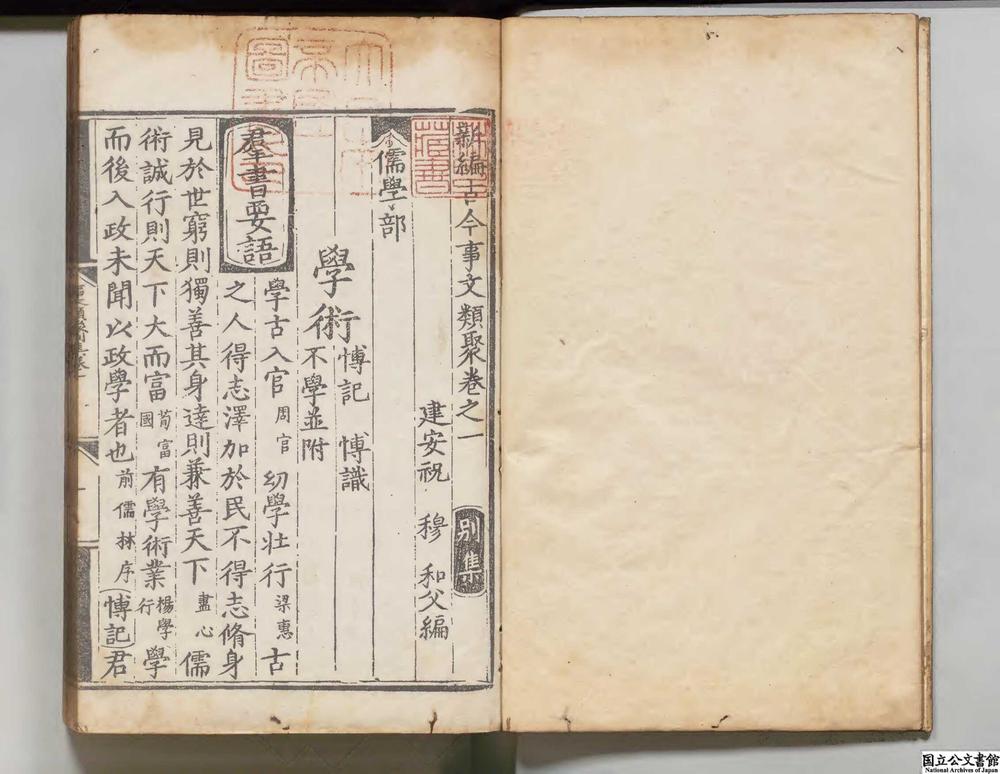 新編古今事文類聚卷之一 別集
建安祝 穆 和父編
儒學部
學術 博記 博識
不學並附
羣書要語 學古入官 周官 幼學壯行 梁惠 古
之人得志澤加於民不得志脩身
見於世窮則獨善其身達則兼善天下 盡心 儒
術誠行則天下大而富 荀富國 有學術業 楊學行 學
而後入政未聞以政學者也 前儒林序 (博記)君
藏書
国立公文書館
National Archives of Japan